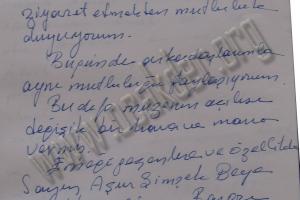 ziyaret etmekten mutluluk
duyuyorum.
Bugünde arkadaşlarımla
aynı mutluluğu paylaşıyorum.
Bu defa müzenin açılışı
değişik bir hava ve mana
vermiş.
Emeği geçenlere ve özellikle
Sayın Aşur Şimşek Beye